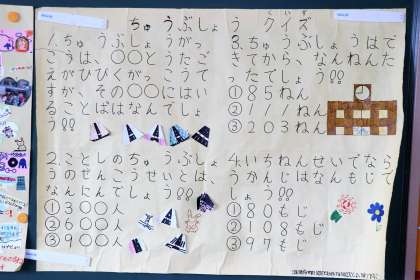 ちゅうぶしょう クイズ
1.ちゅうぶしょうがっ
こうは、○○とうたご
えがひびくがっこうで
すが、その○○にはい
ることばはなんでしょ
う!!
2.ことしのちゅうぶしょ
うのぜんこうせいとは、
なんにんでしょう!!
①300人
②600人
③900人
3.ちゅうぶしょうはで
きてから、なんねんた
ったでしょう!!
①85ねん
②111ねん
③203ねん
4.いちねんせいでなら
うかんじはなんもじで
しょう!!
①80もじ
②108もじ
③97もじ